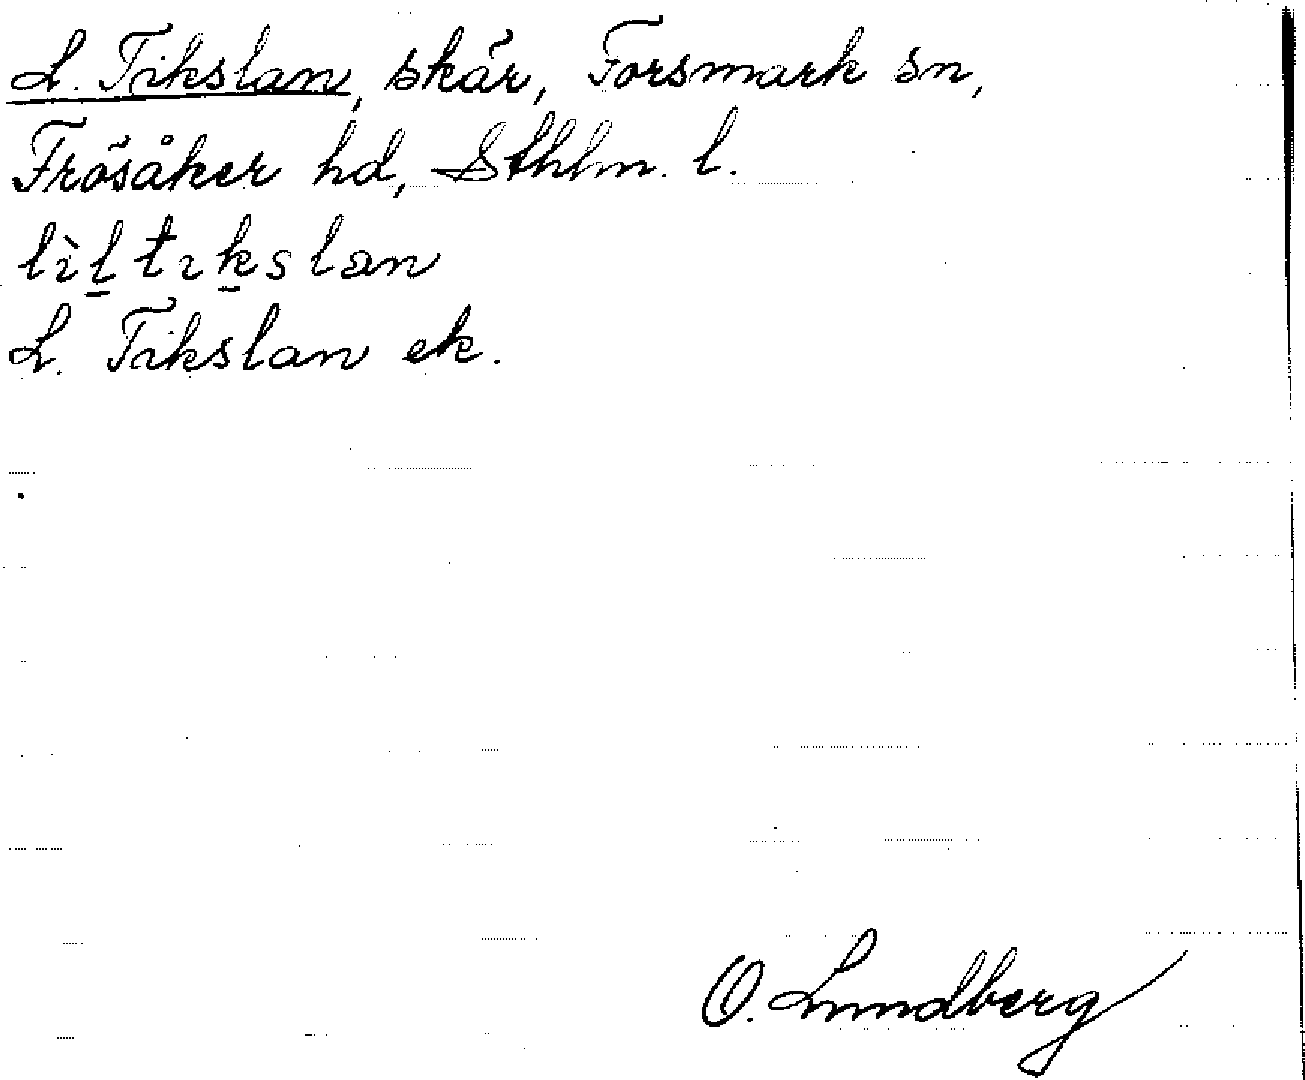 L. Tikslan, skär, Forsmark sn,
Frösåker hd, Sthlm. l.
lìḻ tıḵslan
L. Tikslan ek.
O. Lundberg